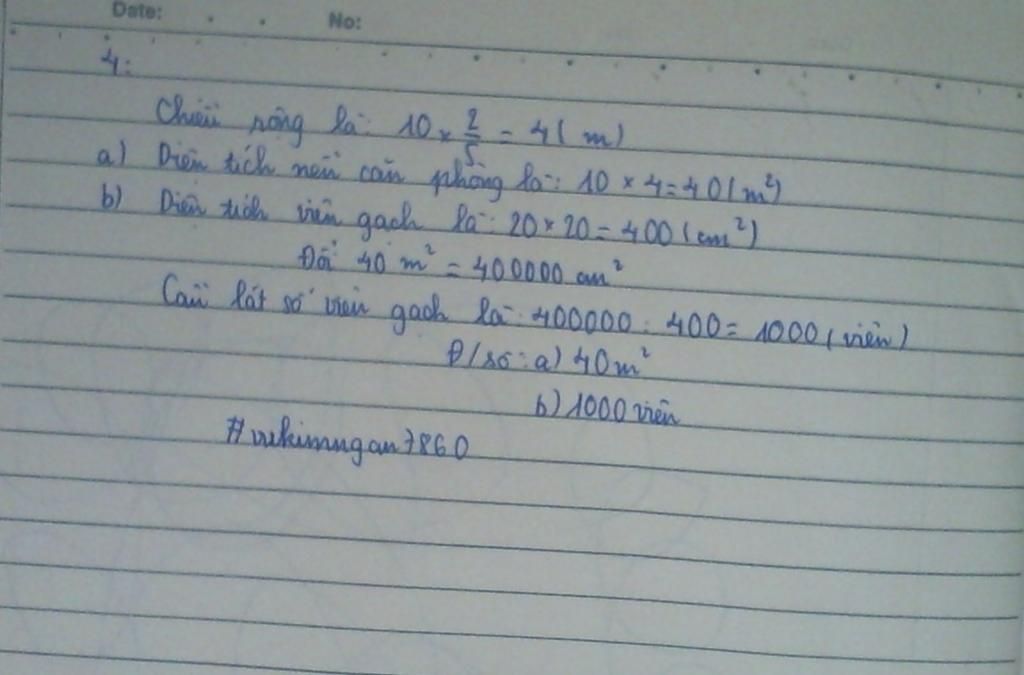 Date: No:
4:
Chiều rộng là: 10 × 2/5 = 4 ( m)
a) Diện tích nền căn phòng là: 10 × 4 = 40 ( m²)
b) Diện tích viên gạch là: 20 × 20 = 400 (cm²)
Đổi 40 m² = 400000 cm²
Cần lát số viên gạch là: 400000 : 400 = 1000 ( viên)
Đ/số: a) 40 m²
b) 1000 viên
#vukimngan7860